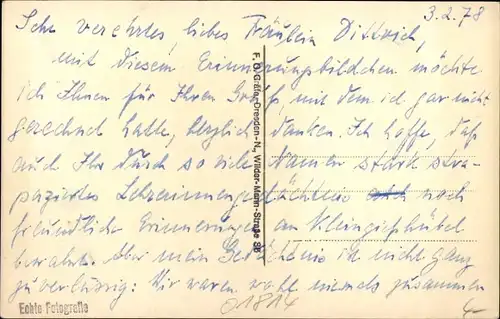 3.2.78
Sehr verehrtes, liebes Fräulein Dittrich,
mit diesem Erinnerungsbildchen möchte
ich Ihnen für Ihren Gruß, mit dem ich gar nicht
gerechnet hatte, herzlich danken. Ich hoffe, daß
auch Ihr durch so viele Namen stark stra-
paziertes Lehrerinnengedächtnis noch
freundliche Erinnerungen an Kleingießhübel
bewahrt. Aber mein Gedächtnis ist nicht ganz
zuverlässig: Wir waren wohl niemals zusammen
F. O. Gräfe, Dresden-N., Wilder-Mann-Straße 36
Echte Fotografie
01814